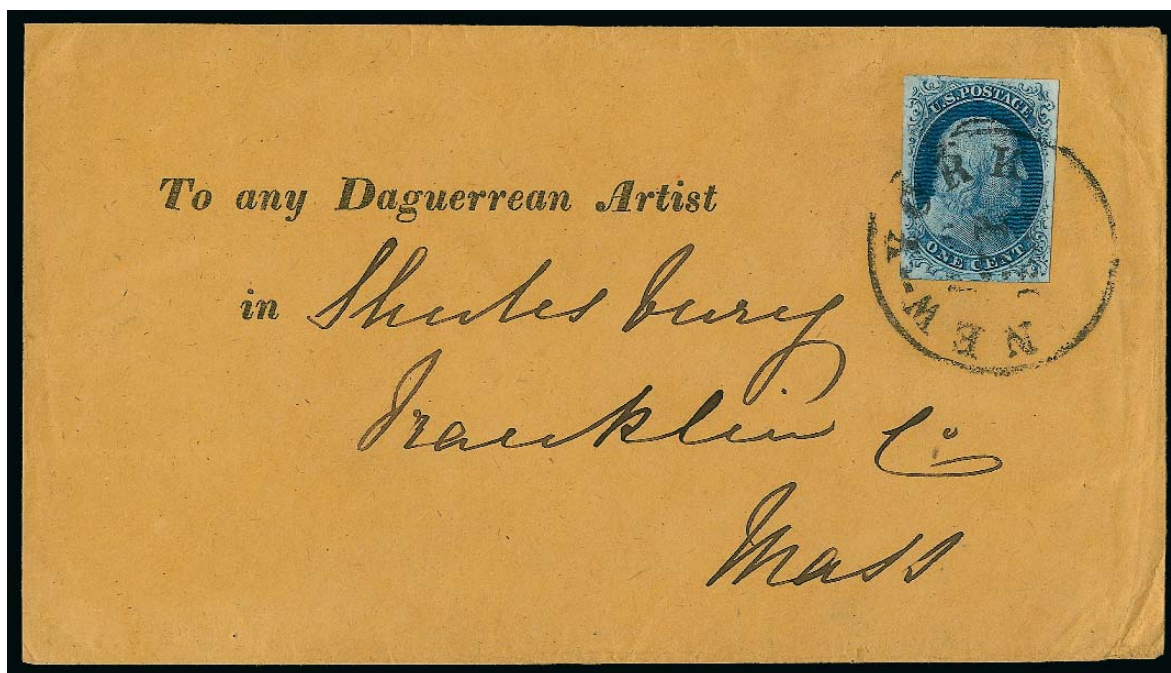 U.S. POSTAGE
ONE CENT
NEW-YORK
To any Daguerrean Artist
in Shutesbury
Franklin Co
Mass